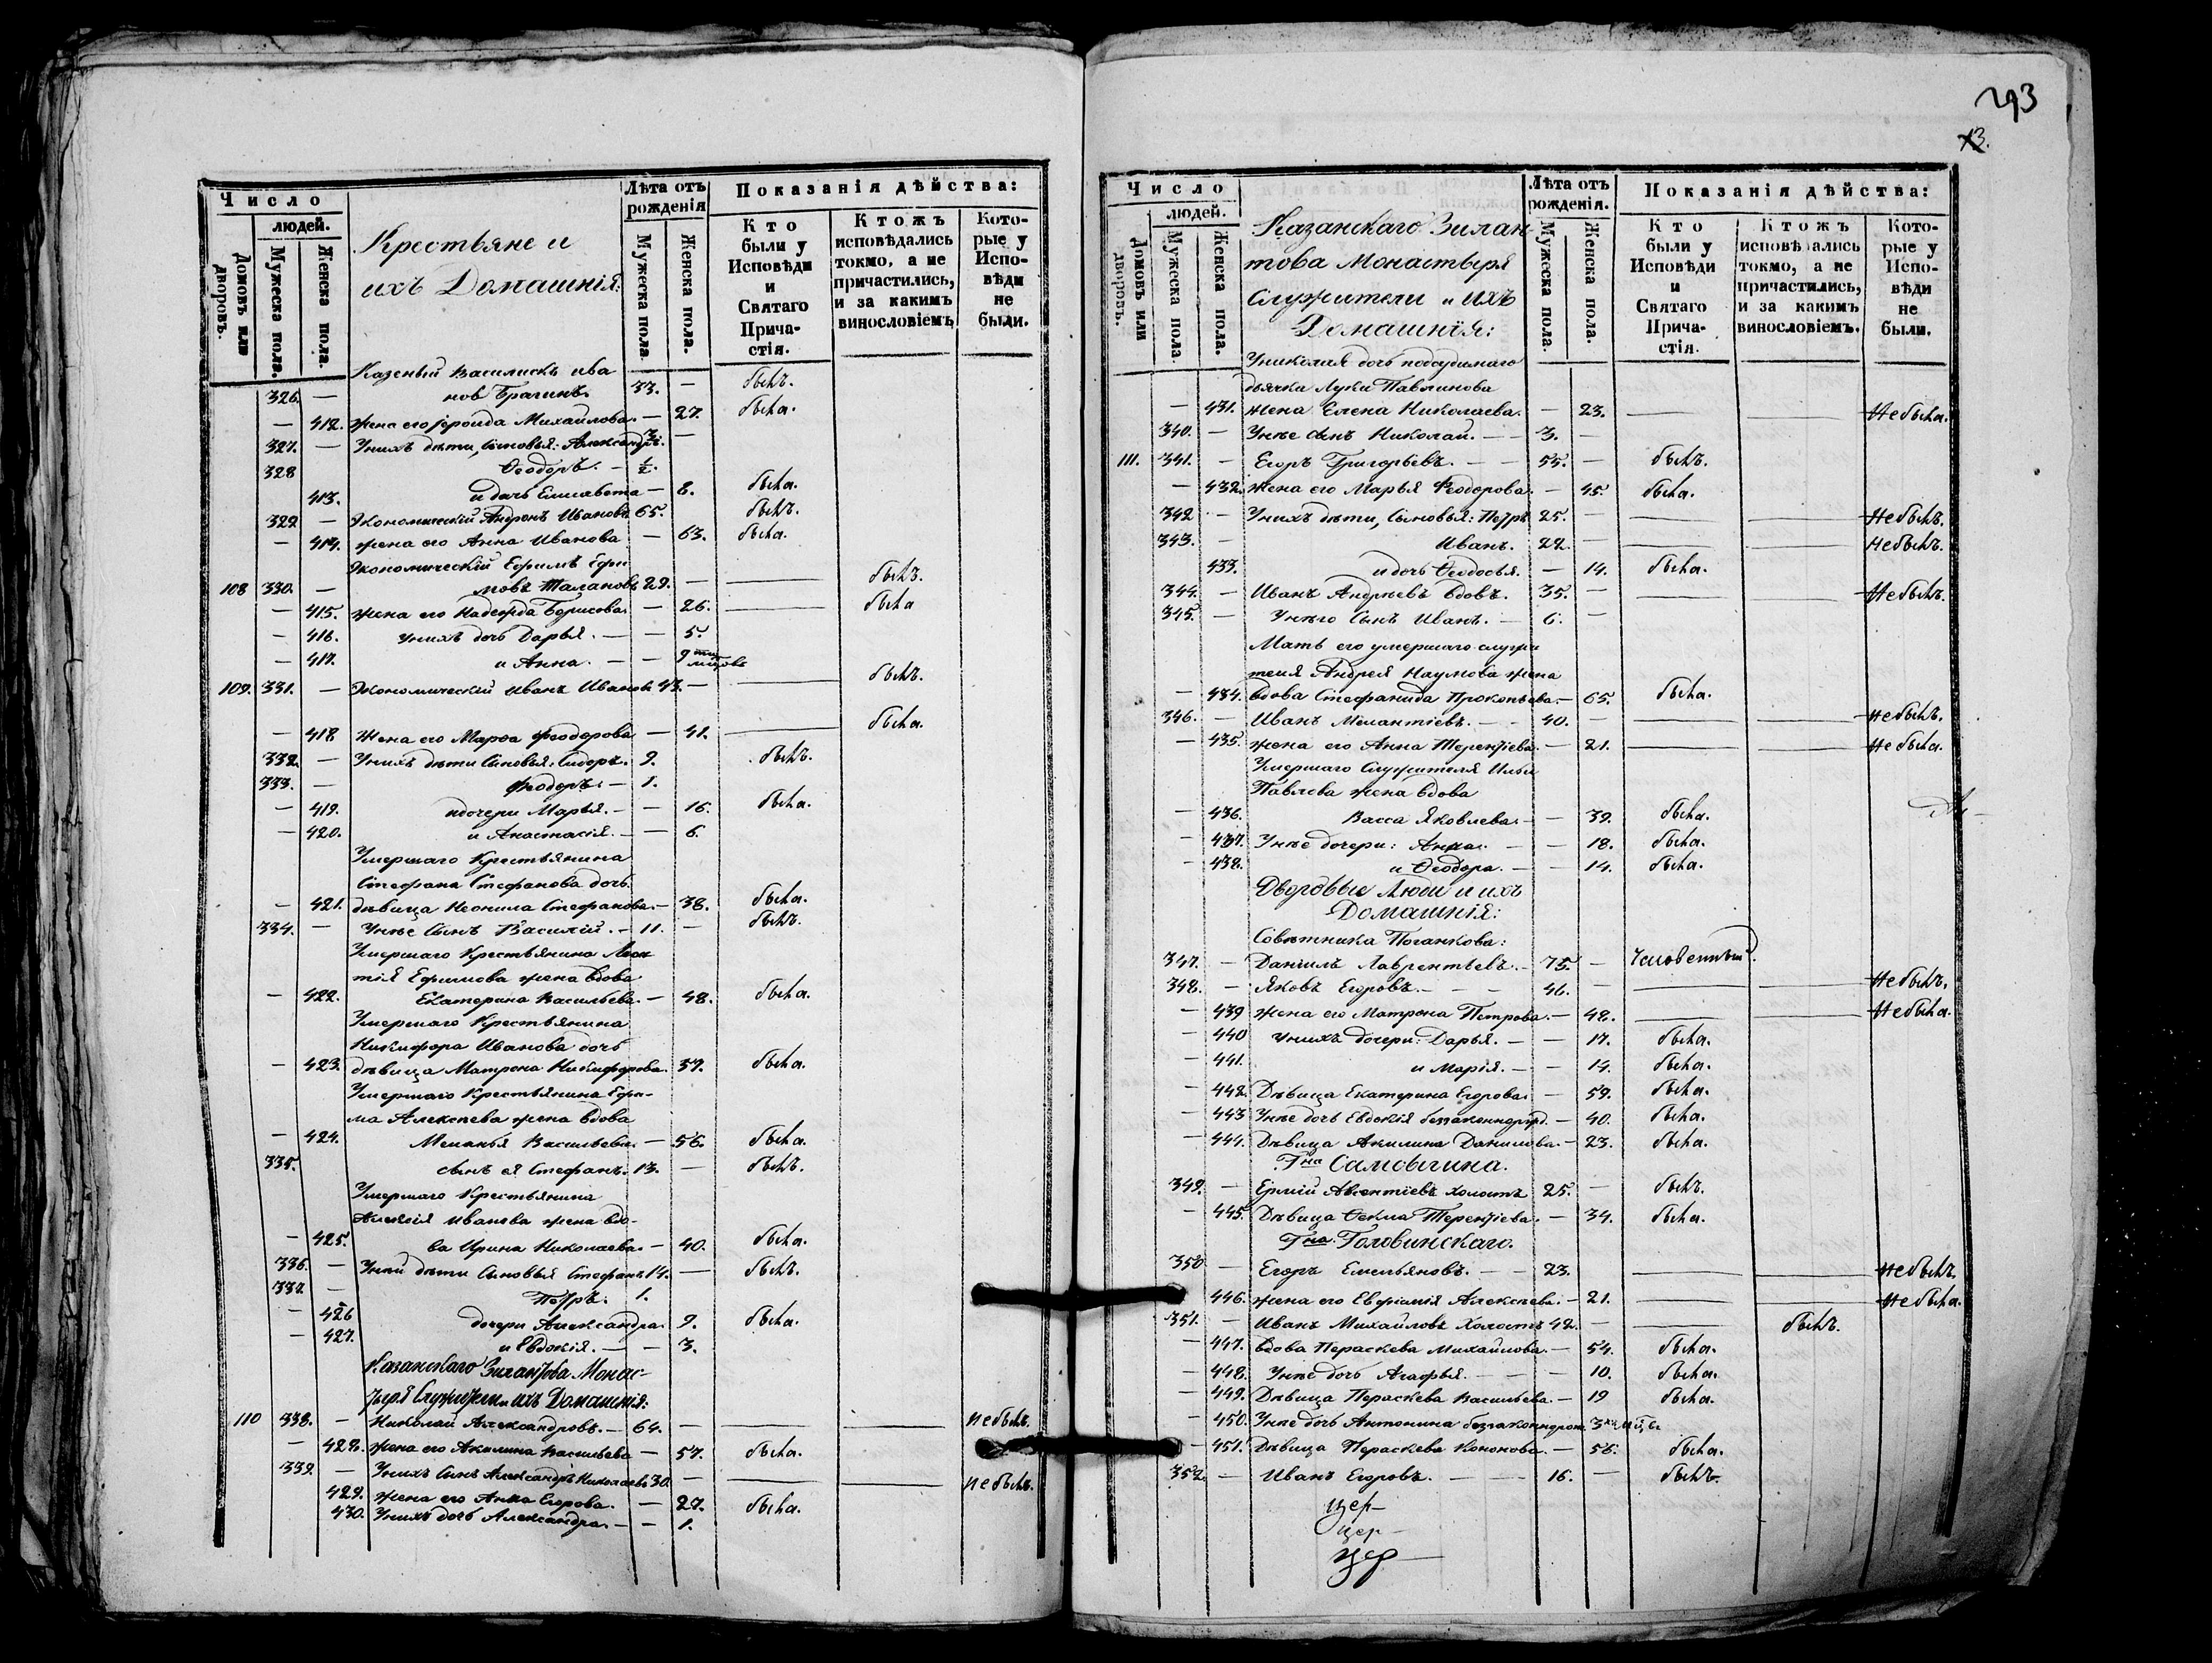 Число
людей.
Домовъ или дворовъ.
Мужеска пола.
Женска пола.
Крестьяне и
ихъ Домашнія:
Лѣта отъ рожденія
Мужеска пола.
Женска пола.
Показанія дѣйства:
Кто были у Исповѣди и Святаго Прича-стія.
Ктожъ исповѣдались токмо, а не причастились, и за какимъ винословіемъ
Кото-рые у Испо-вѣди не были.
Казеный Василискъ Ива
326. — новъ Брагинъ. 33. — былъ.
— 412. жена его Михайлова. — 27. была.
327. — Унихъ дѣти, сыновья: Александръ. 3. —
328 Ѳеодоръ. — ½.
413. и дочь Елисавета — 8. была.
329 — Экономическій Андронъ Ивановъ 65. былъ.
— 414. жена его Анна Иванова — 63. была.
Экономическій Ефимъ Ефи
108 330. — мовъ Талановъ 29. — — былъ.
— 415. жена его Надежда Борисова. — 26. — была
— 416. унихъ дочь Дарья. — — 5.
— 417. и Анна. — — 9 мцовъ
109. 331. — Экономическій Иванъ Ивановъ 43. — — былъ.
— 418 жена его Марѳа Ѳеодорова — 41. — была.
332. — Унихъ дѣти Сыновья: Сидоръ. 9. былъ.
333. — Ѳеодоръ. — 1.
— 419. и дочери Марья. — — 16. была.
— 420. и Анастасія. — — 6.
Умершаго Крестьянина
Стефана Стефанова дочь
— 421. дѣвица Неонила Стефанова. — 38. была.
334. — Унѣе Сынъ Василій. — 11. — былъ.
Умершаго Крестьянина Леон
тія Ефимова жена вдова
— 422. Екатерина Васильева. — 48. была.
Умершаго Крестьянина
Никифора Иванова дочь
— 423. дѣвица Матрона Никифорова. 37. была.
Умершаго Крестьянина Ефи-
ма Алексѣева жена вдова
— 424. Меланья Васильева. — 56. была.
335. сынъ ея Стефанъ. 13. — былъ.
Умершаго Крестьянина
Алексія Иванова жена вдо-
— 425. ва Ирина Николаева. — 40. была.
336. — Уней дѣти Сыновья Стефанъ 14. — былъ.
337. — Петръ. 1.
— 426 дочери Александра. 9. была.
— 427. и Евдокія. — — 3.
Казанскаго Зилантова Монас-
тыря Служители и ихъ Домашнія:
110 338. — Николай Александровъ. — 64. — — — не былъ.
— 428. жена его Акилина Васильева — 57. была.
339. — Унихъ Сынъ Александръ Николаевъ 30. — — — не былъ.
429. жена его Анна Егорова. — 27. была.
430. Унихъ дочь Александра. — — 1.
293
13.
Число
людей.
Домовъ или дворовъ.
Мужеска пола.
Женска пола.
Казанскаго Зилан
това Монастыря
Служители и ихъ
Домашнія:
Лѣта отъ рожденія.
Мужеска пола.
Женска пола.
Показанія дѣйства:
Кто были у Исповѣди и Святаго Прича-стія.
Ктожъ исповѣдались токмо, а не причастились, и за какимъ винословіемъ.
Кото-рые у Испо-вѣди не были.
Униколая дочь подсудимаго
дьячка Луки Павлинова
— 431. жена Елена Николаева. — 23. — — Не была.
340. — Унѣе сынъ Николай. — — 3. —
111. 341. — Егоръ Григорьевъ. — — 55. — былъ.
— 432. жена его Марья Ѳеодорова. — 45. была.
342 — Унихъ дѣти, Сыновья: Петръ 25. — — — Не былъ.
343. — Иванъ. 22. — — Не былъ.
433. и дочь Ѳеодосья. — 14. была.
344. — Иванъ Андреевъ вдовъ. 35. — — — Не былъ.
345. — Унѣго Сынъ Иванъ. — 6. —
Мать его умершаго служи
теля Андрея Наумова жена
— 434. вдова Стефанида Прокопьева. — 65. была.
346. — Иванъ Мелантіевъ. — — 40. — — — Не былъ.
— 435. жена его Анна Терентіева. — 21. — — Не была.
Умершаго Служителя Ильи
Павлева жена вдова
— 436. Васса Яковлева. — — 39. была.
— 437. Унѣе дочери: Анна. — — 18. была.
— 438. и Ѳеодора. — — 14. была.
Дворовые Люди и ихъ
Домашнія:
Совѣтника Поганкова:
347. — Даніилъ Лаврентьевъ. — 75. —
348. — Яковъ Егоровъ. — — — 46. — — — Не былъ.
— 439 жена его Матрона Петрова. — 48. — — Не была.
— 440 унихъ дочери: Дарья. — — 17. была.
— 441. и Марія. — — 14. была.
— 442. Дѣвица Екатерина Егорова. — 59. была.
— 443 Унѣе дочь Евдокія безаконнорожд. — 40. была.
— 444. Дѣвица Акилина Данилова. — 23. была.
Гна Самовгина.
349. — Ермій Авентіевъ холостъ 25. — былъ.
— 445. Дѣвица Ѳекла Терентіева. — 34. была.
Гна Головинскаго.
350 — Егоръ Емельяновъ. — — 23. — — Не былъ.
446. жена его Евфимія Алексѣева. — 21. — — Не была.
351. — Иванъ Михайловъ Холостъ 42. — — былъ.
— 447. Вдова Параскева Михайлова. — 54. была.
— 448. Унѣе дочь Агафья. — — — 10. была.
— 449. Дѣвица Параскева Васильева. — 19 была.
— 450. Унѣе дочь Антонина безаконнорож. 3хъ мцъ.
— 451. Дѣвица Параскева Кононова. — 56. была.
352. — Иванъ Егоровъ. — — — 16. — былъ.
цер—
цер—
цер—